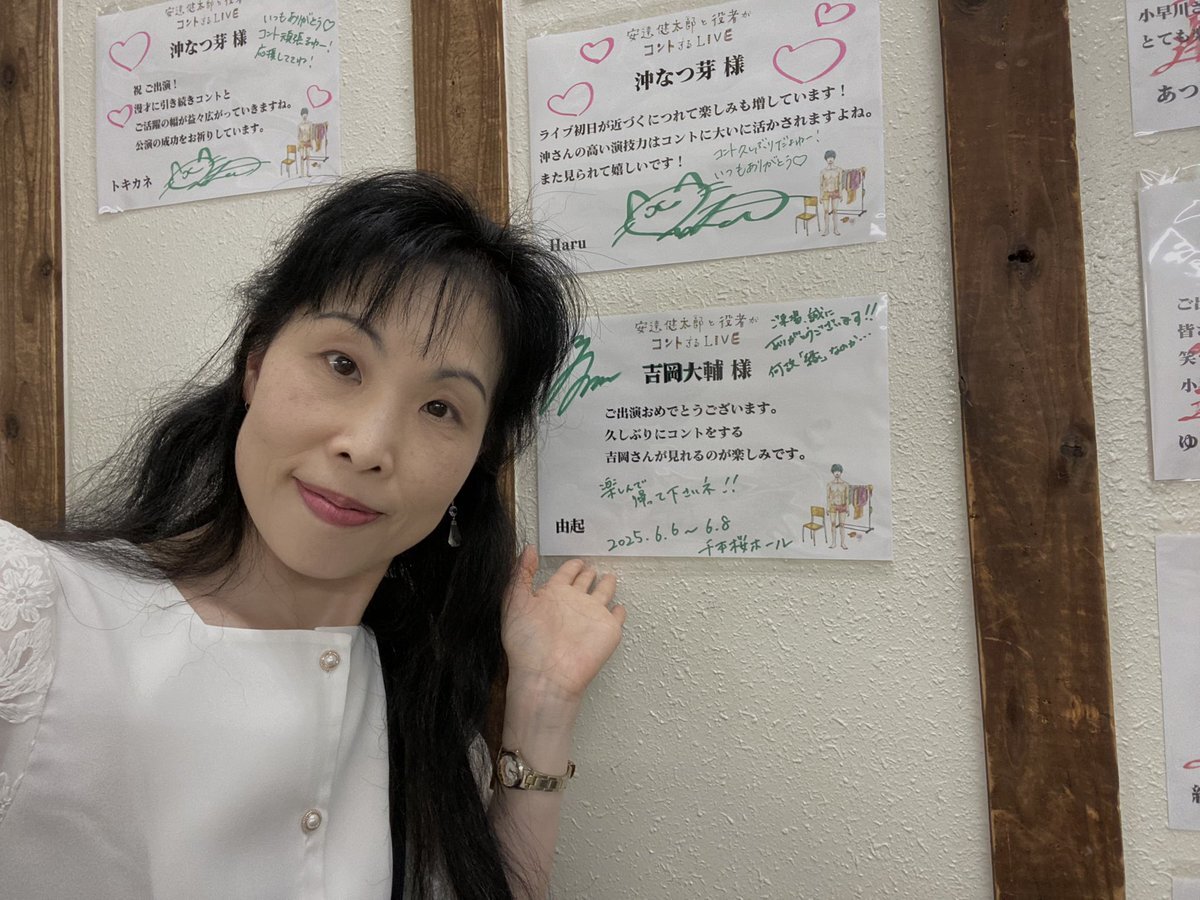 安達健太郎と役者が
コントするLIVE
沖なつ芽 様
いつもありがとう♡
コント頑張るゆー!
応援しててね!
祝 ご出演!
漫才に引き続きコントと
ご活躍の幅が益々広がっていきますね。
公演の成功をお祈りしています。
トキカネ
安達健太郎と役者が
コントするLIVE
沖なつ芽 様
ライブ初日が近づくにつれて楽しみも増しています!
沖さんの高い演技力はコントに大いに活かされますよね。
また見られて嬉しいです!
コント久しぶりだよゆー!
いつもありがとう♡
Haru
安達健太郎と役者が
コントするLIVE
吉岡大輔 様
ご来場、誠に
ありがとうございます!!
何故「緑」なのか…
ご出演おめでとうございます。
久しぶりにコントをする
吉岡さんが見れるのが楽しみです。
楽しんで
帰って下さいネ!!
由起
2025.6.6〜6.8
千本桜ホール
小早川さ
とても
あつ
ご出
皆さ
笑
小
ゆ